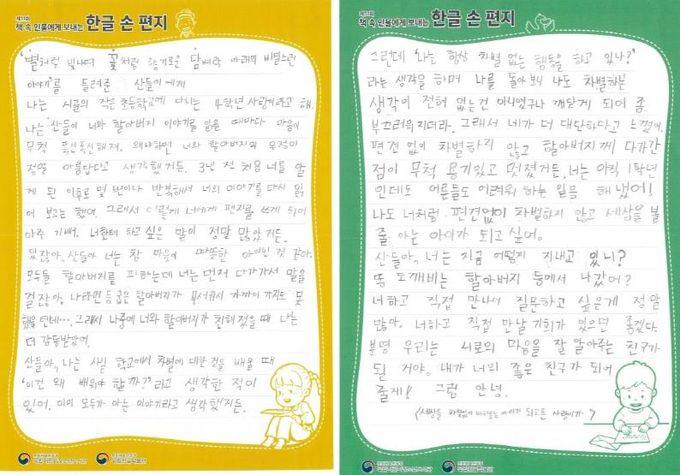 제11회
책 속 인물에게 보내는 한글 손 편지
'별처럼 빛나며 꽃처럼 향기로운 담벼락 아래의 비밀스런
이야기'를 들려준 산들이에게
나는 시골의 작은 초등학교에 다니는 4학년 사랑이라고 해.
나는 산들이 너와 할아버지 이야기를 읽을 때마다 마음이
무척 푹신푹신해져. 왜냐하면 너와 할아버지의 우정이
정말 아름답다고 생각했거든. 3년 전 처음 너를 알
게 된 이후로 몇 번이나 반복해서 너의 이야기를 다시 읽
어 보고는 했어. 그래서 이렇게 너에게 편지를 쓰게 되어
아주 기뻐. 너한테 하고 싶은 말이 정말 많았거든.
있잖아, 산들아 너는 참 마음이 따뜻한 아이인 것 같아.
모두들 할아버지를 피하는데 너는 먼저 다가가서 말을
걸잖아. 나라면 등굽은 할아버지가 무서워서 가까이 가지도 못
했을텐데… 그래서 나중에 너와 할아버지가 친해졌을 때 나는
더 감동받았어.
산들아, 나는 사실 학교에서 차별에 대한 것을 배울 때
'이건 왜 배워야 할까?'라고 생각한 적이
있어. 이미 모두가 아는 이야기라고 생각했거든.
제11회
책 속 인물에게 보내는 한글 손 편지
그런데 '나는 항상 차별 없는 행동을 하고 있나?'
라는 생각을 하며 나를 돌아 보니 나도 차별하는
생각이 전혀 없는건 아니었구나 깨닫게 되어 좀
부끄러워지더라. 그래서 네가 더 대단하다고 느꼈어.
편견 없이 차별하지 않고 할아버지께 다가간
점이 무척 용기있고 멋졌거든. 너는 아직 1학년
인데도 어른들도 어려워 하는 일을 해 냈어!
나도 너처럼 편견없이 차별하지 않고 세상을 볼
줄 아는 아이가 되고 싶어.
산들아, 너는 지금 어떻게 지내고 있니?
또 도깨비는 할아버지 등에서 나갔어?
너하고 직접 만나서 질문하고 싶은게 정말
많아. 너하고 직접 만날 기회가 있으면 좋겠다.
분명 우리는 서로의 마음을 잘 알아주는 친구가
될 거야. 내가 너의 좋은 친구가 되어
줄게! 그럼 안녕.